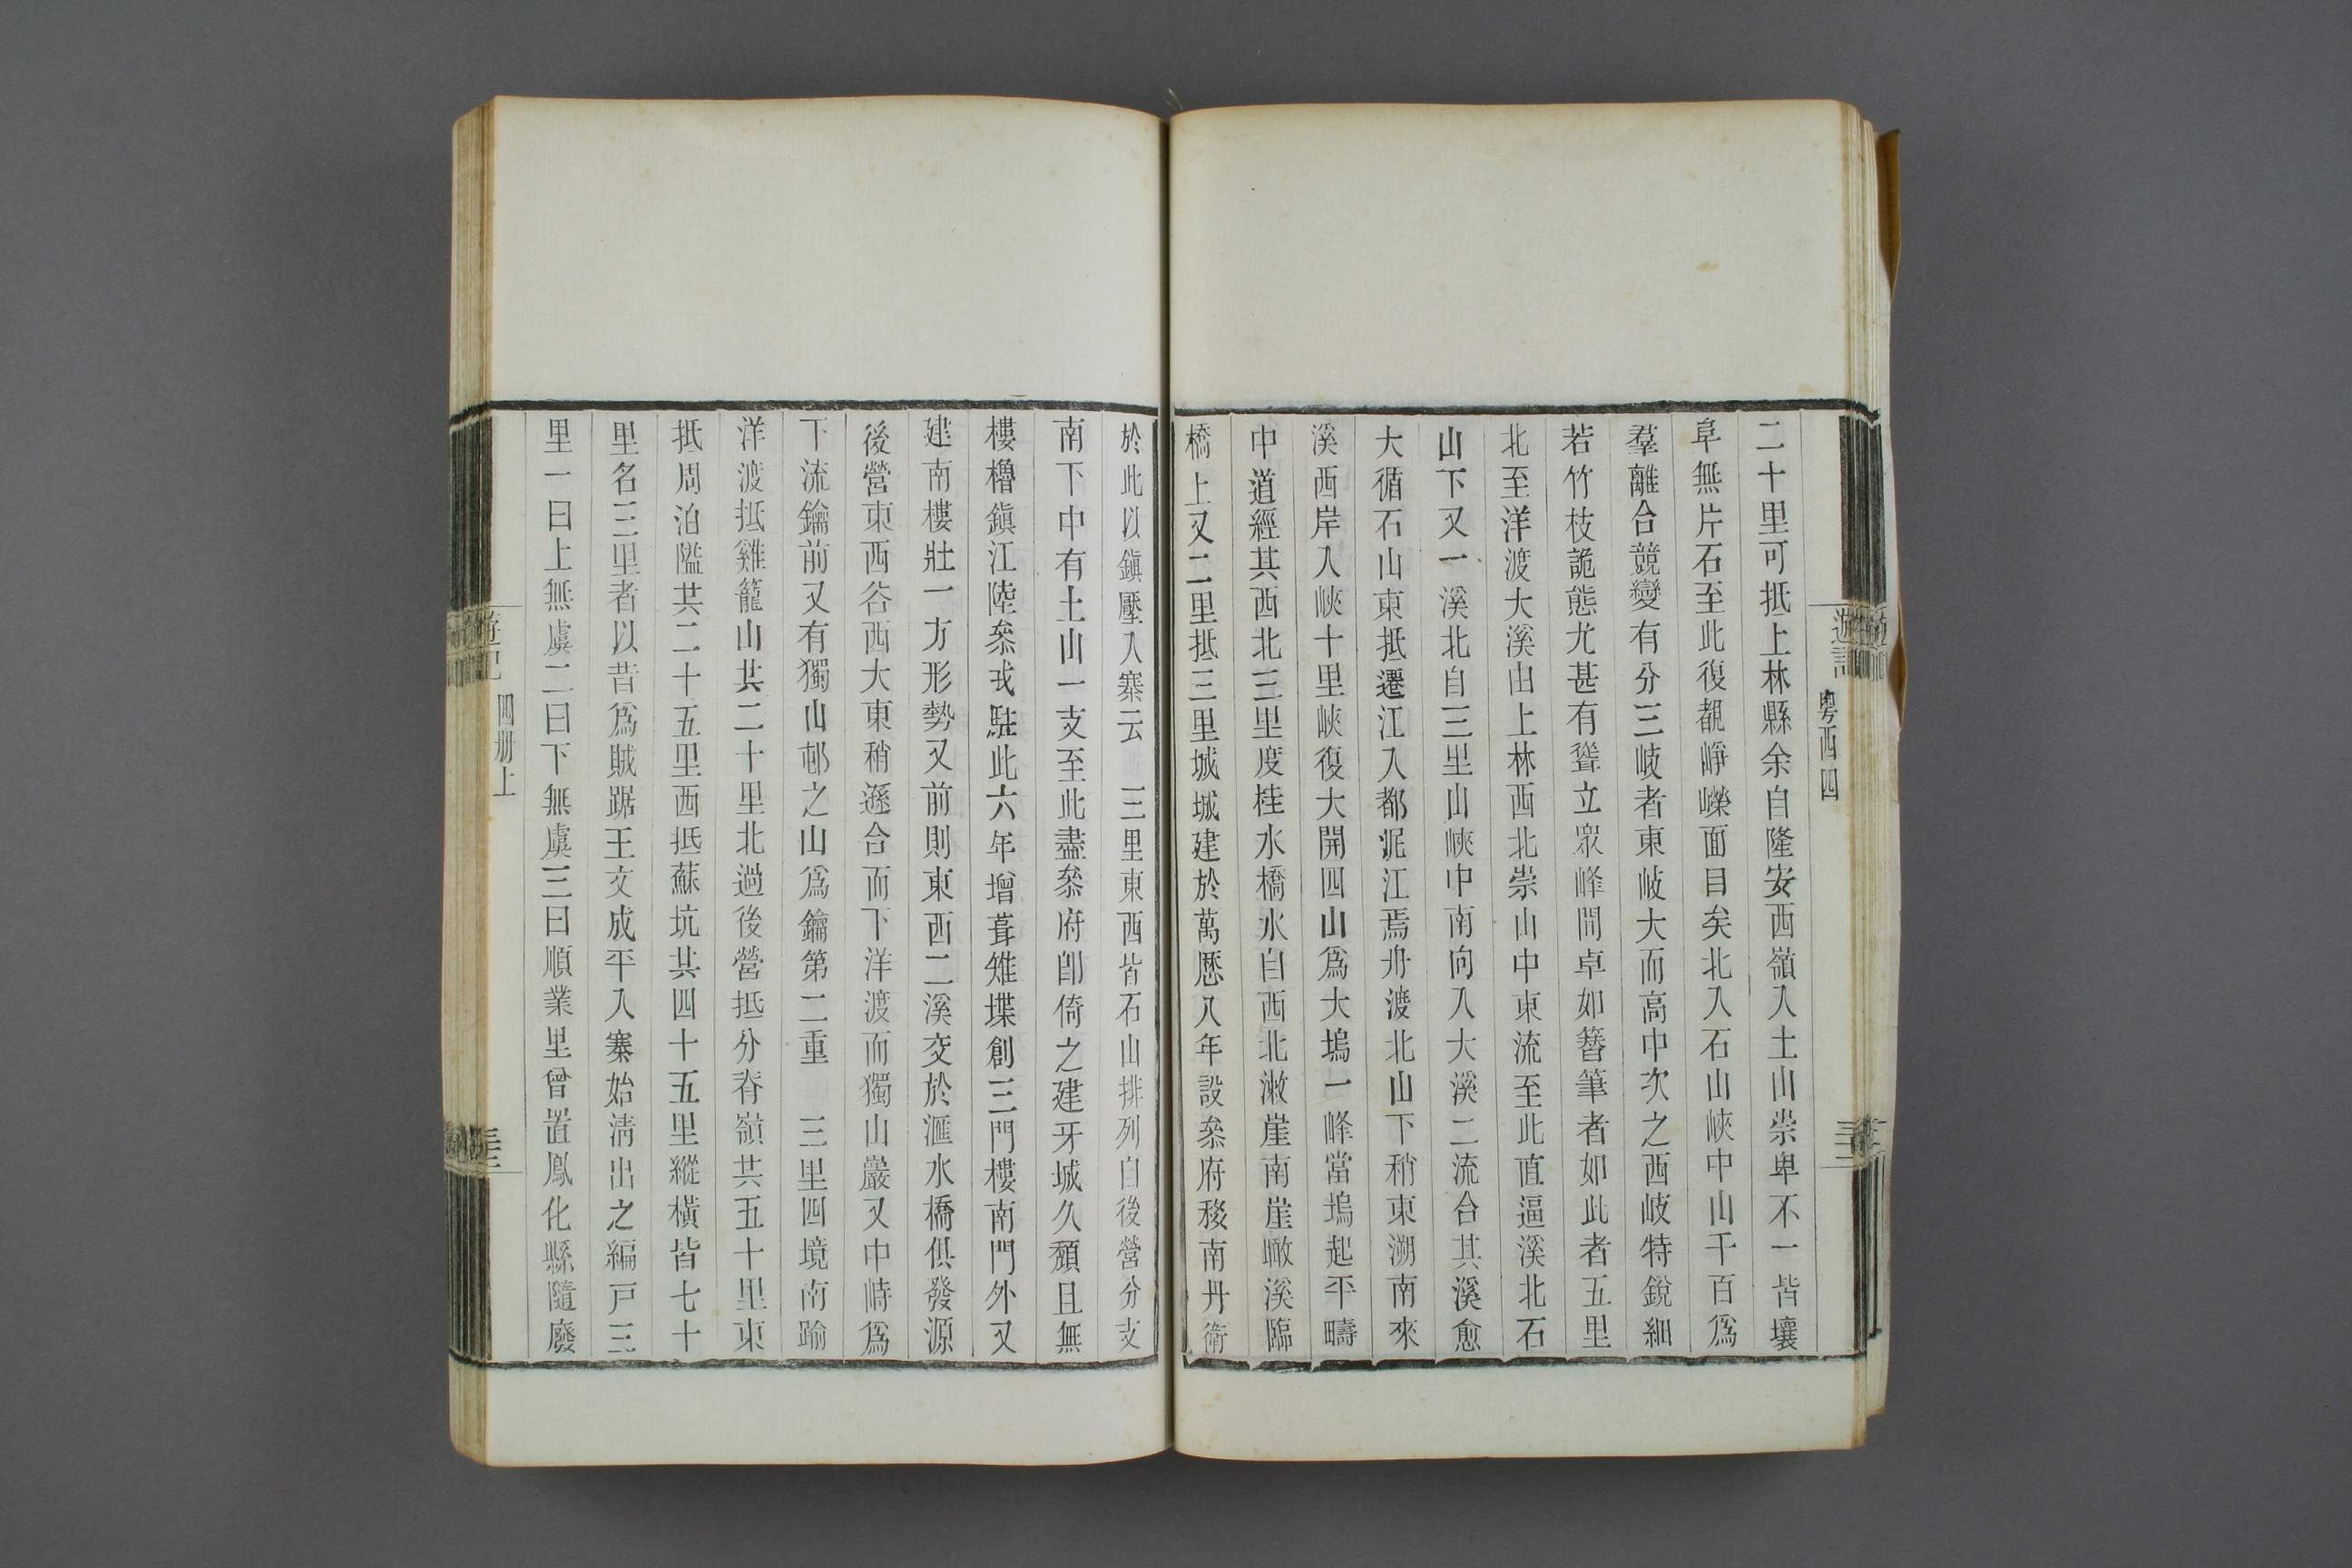 遊記
粤西四
二十里可抵上林縣余自隆安西嶺入土山崇卑不一皆壤
阜無片石至此復覩崢嶸面目矣北入石山峽中山千百爲
羣離合競變有分三岐者東岐大而高中次之西岐特銳細
若竹枝詭態尤甚有聳立眾峰間卓如簪筆者如此者五里
北至洋渡大溪由上林西北崇山中東流至此直逼溪北石
山下又一溪北自三里山峽中南向入大溪二流合其溪愈
大循石山東抵遷江入都泥江焉舟渡北山下稍東溯南來
溪西岸入峽十里峽復大開四山爲大塢一峰當塢起平疇
中道經其西北三里度桂水橋水自西北漱崖南崖瞰溪臨
橋上又二里抵三里城城建於萬歷八年設叅府移南丹衛
於此以鎮壓八寨云 三里東西皆石山排列自後營分支
南下中有土山一支至此盡叅府卽倚之建牙城久頹且無
樓櫓鎮江陸叅戎駐此六年增葺雉堞創三門樓南門外又
建南樓壯一方形勢又前則東西二溪交於滙水橋俱發源
後營東西谷西大東稍遜合而下洋渡而獨山巖又中峙爲
下流鑰前又有獨山邨之山爲鑰第二重 三里四境南踰
洋渡抵雞籠山共二十里北過後營抵分脊嶺共五十里東
抵周泊隘共二十五里西抵蘇坑共四十五里縱橫皆七十
里名三里者以昔爲賊踞王文成平八寨始淸出之編戸三
里一曰上無虞二曰下無虞三曰順業里曾置鳳化縣隨廢
遊記
四册上